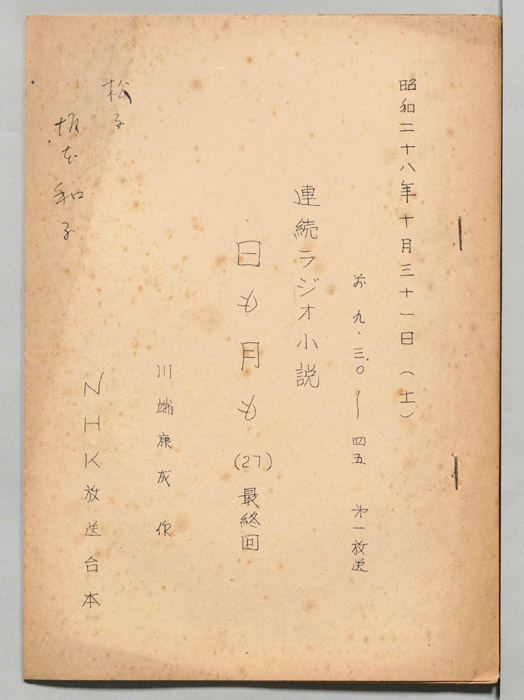 昭和二十八年十月三十一日(土)
前 九・三〇〜四五 第一放送
連続ラジオ小説
日も月も(27)最終回
川端康成作
NHK放送台本
松子
坂本和子